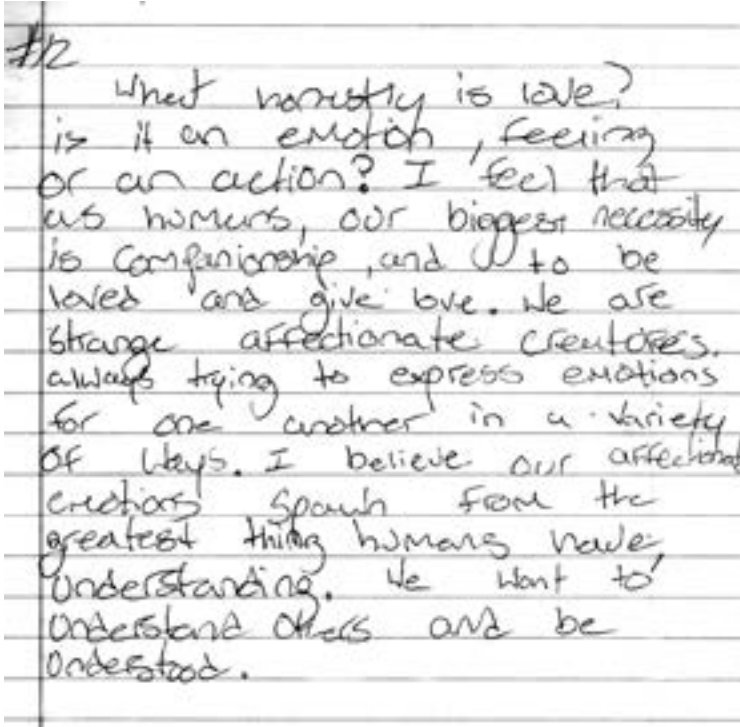 #12
What honestly is love?
is it an emotion, feeling
or an action? I feel that
as humans, our biggest necessity
is companionship, and to be
loved and give love. We are
strange affectionate creatures.
always trying to express emotions
for one another in a variety
of ways. I believe our affectionate
emotions spawn from the
greatest thing humans have,
understanding. We want to
understand others and be
understood.